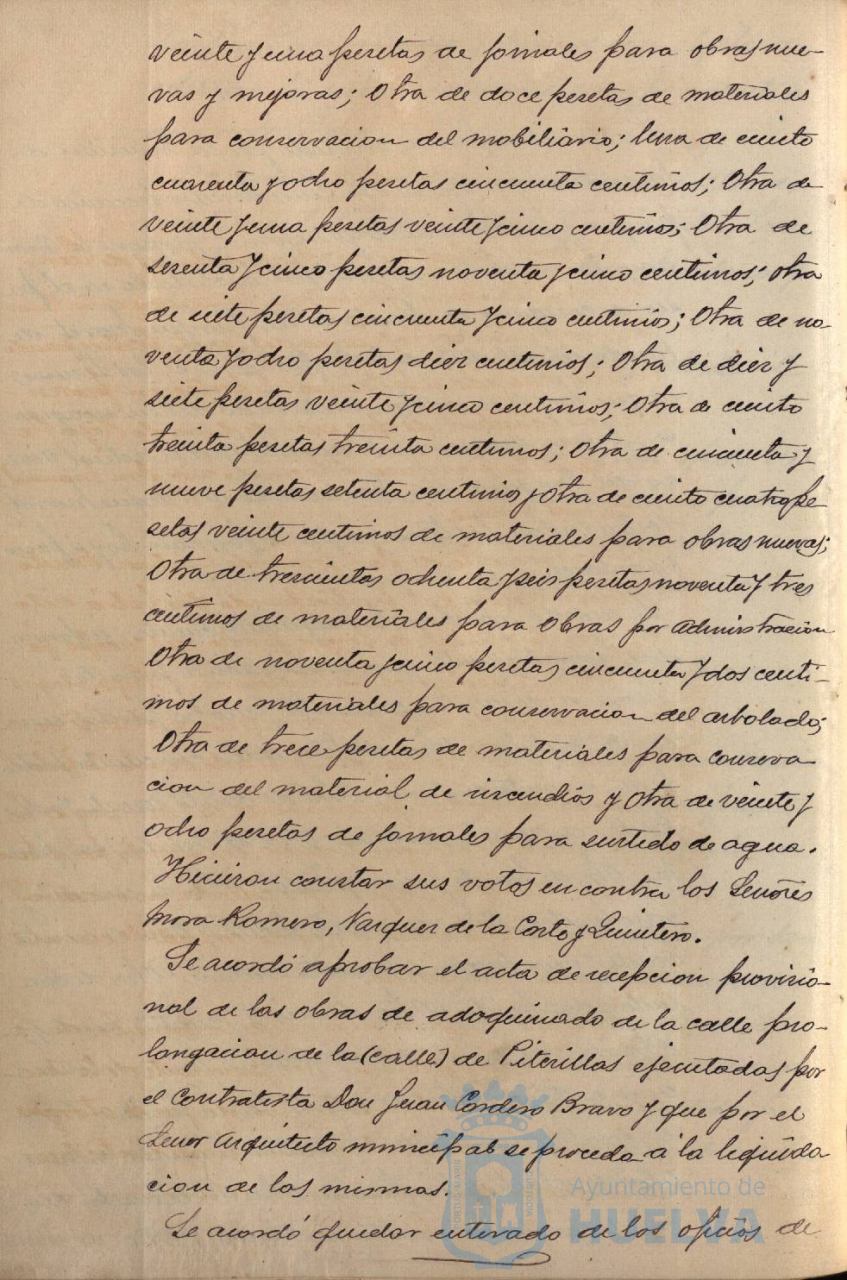 veinte y una pesetas de jornales para obras nue-
vas y mejoras; Otra de doce pesetas de materiales
para conservacion del mobiliario; Una de ciento
cuarenta y ocho pesetas cincuenta centimos; Otra de
veinte y una pesetas veinte y cinco centimos; Otra de
setenta y cinco pesetas noventa y cinco centimos; otra
de siete pesetas cincuenta y cinco centimos; Otra de no-
venta y ocho pesetas diez centimos; Otra de diez y
siete pesetas veinte y cinco centimos; Otra de ciento
treinta pesetas treinta centimos; Otra de cincuenta y
nueve pesetas setenta centimos y otra de ciento cuatro pe
setas veinte centimos de materiales para obras nuevas;
Otra de trescientas ochenta y seis pesetas noventa y tres
centimos de materiales para Obras por administracion
Otra de noventa y cinco pesetas cincuenta y dos centi-
mos de materiales para conservacion del arbolado;
Otra de trece pesetas de materiales para conserva
cion del material de incendios y otra de veinte y
ocho pesetas de jornales para surtido de agua.
Hicieron constar sus votos en contra los Señores
Mora Romero, Vazquez de la Corte y Quintero.
Se acordó aprobar el acta de recepcion provisio-
nal de las obras de adoquinado de la calle pro-
longacion de la (calle) de Piterillas ejecutadas por
el contratista Don Juan Cordero Bravo y que por el
Señor Arquitecto municipal se proceda á la liquida
cion de las mismas.
Se acordó quedar enterado de los oficios de
Ayuntamiento de
HUELVA